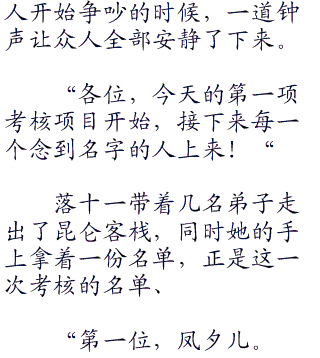 人开始争吵的时候，一道钟
声让众人全部安静了下来。
“各位，今天的第一项
考核项目开始，接下来每一
个念到名字的人上来！“
落十一带着几名弟子走
出了昆仑客栈，同时她的手
上拿着一份名单，正是这一
次考核的名单、
“第一位，凤夕儿。